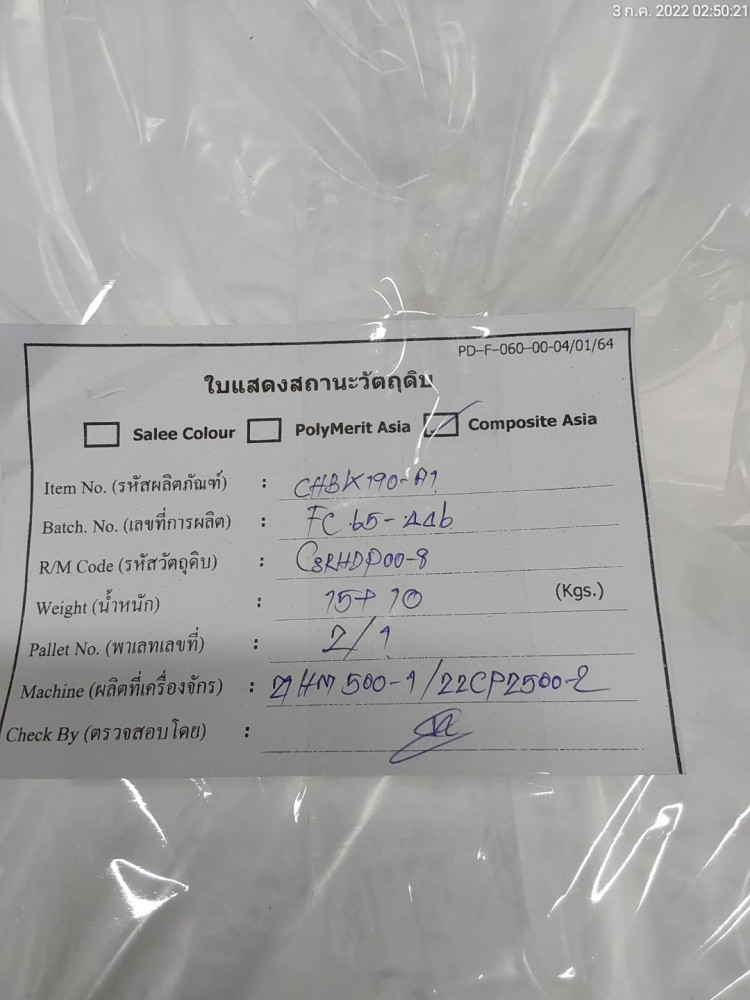 3 ก.ค. 2022 02:50:21
PD-F-060-00-04/01/64
ใบแสดงสถานะวัตถุดิบ
Salee Colour PolyMerit Asia Composite Asia
Item No. (รหัสผลิตภัณฑ์) : CHBK190-A1
Batch. No. (เลขที่การผลิต) : FC 65-446
R/M Code (รหัสวัตถุดิบ) : CSRHDP00-8
Weight (น้ำหนัก) : 15+10 (Kgs.)
Pallet No. (พาเลทเลขที่) : 2/1
Machine (ผลิตที่เครื่องจักร) : 21HM500-1/22CP2500-2
Check By (ตรวจสอบโดย) :